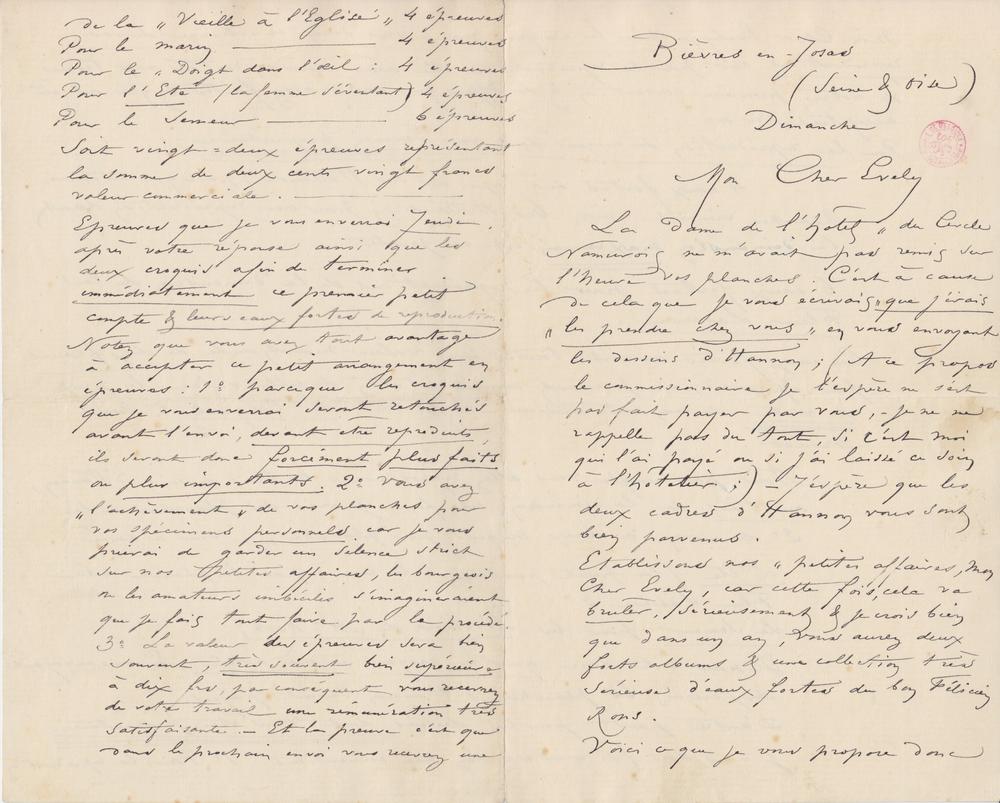 Bièvres en-Josas
(Seine & Oise)
Dimanche
Mon Cher Evely
La Dame de l'hôtel „ du Cercle
Namurois ne m'avait pas remis sur
l'heure vos planches. C'est à cause
de cela que je vous écrivais „que j'irais
„les prendre chez vous „ en vous envoyant
les dessins d'Hannon ; (A ce propos
le commissionnaire je l'espère ne s'est
pas fait payer par vous, - je ne me
rappelle pas du tout, si c'est moi
qui l'ai payé ou si j'ai laissé ce soin
à l'hôtelier ;) - J'espère que les
deux cadres d'Hannon vous sont
bien parvenus.
Etablissons nos „ petites affaires, mon
Cher Evely, car cette fois, cela va
bruler, sérieusement & je crois bien
que dans un an, vous aurez deux
forts albums & une collection très
sérieuse d'eaux fortes du bon Félicien
Rops.
Voici ce que je vous propose donc
de la „ Vieille à l'Eglise „ 4 épreuves
Pour le marin — 4 épreuves
Pour le „ Doigt dans l'œil : 4 épreuves
Pour l'Eté (la femme s'éventant) 4 épreuves
Pour le Semeur — 6 épreuves
Soit vingt=deux épreuves représentant
la somme de deux cents vingt francs
valeur commerciale. —
Epreuves que je vous enverrai Jeudi
après votre réponse ainsi que les
deux croquis afin de terminer
immédiatement ce premier petit
compte & leurs eaux fortes de reproduction.
Notez que vous avez tout avantage
à accepter ce petit arrangement en
épreuves : 1º parceque les croquis
que je vous enverrai seront retouchés
avant l'envoi, devant etre reproduits,
ils seront donc forcément plus faits
ou plus importants. 2º Vous avez
„l'achèvement „ de vos planches pour
vos spécimens personnels car je vous
prierai de garder un silence strict
sur nos petites affaires, les bourgeois
ou les amateurs imbéciles s'imagineraient
que je fais tout faire par le procédé.
3º La valeur des épreuves sera bien
souvent, très souvent bien supérieure
à dix frs, par conséquent vous recevrez
de votre travail une rémunération très
satisfaisante. - Et la preuve c'est que
dans le prochain envoi vous recevrez une